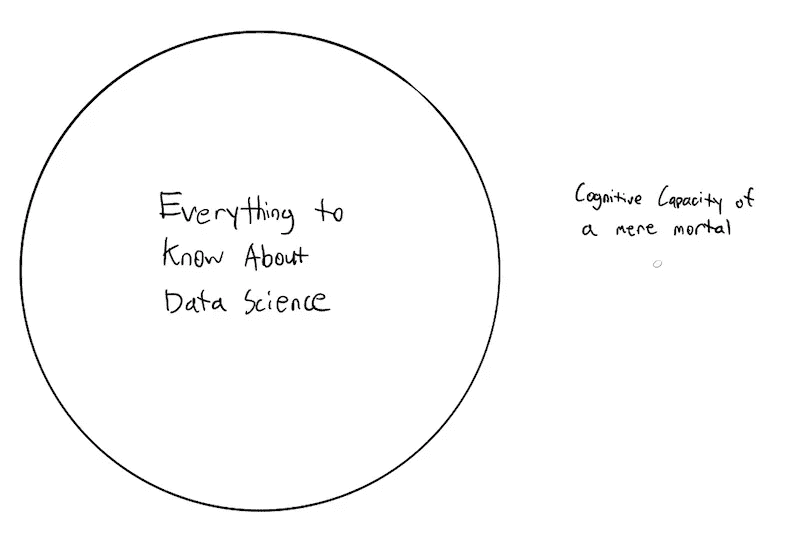 Everything to
Know About
Data Science
Cognitive Capacity of
a mere mortal